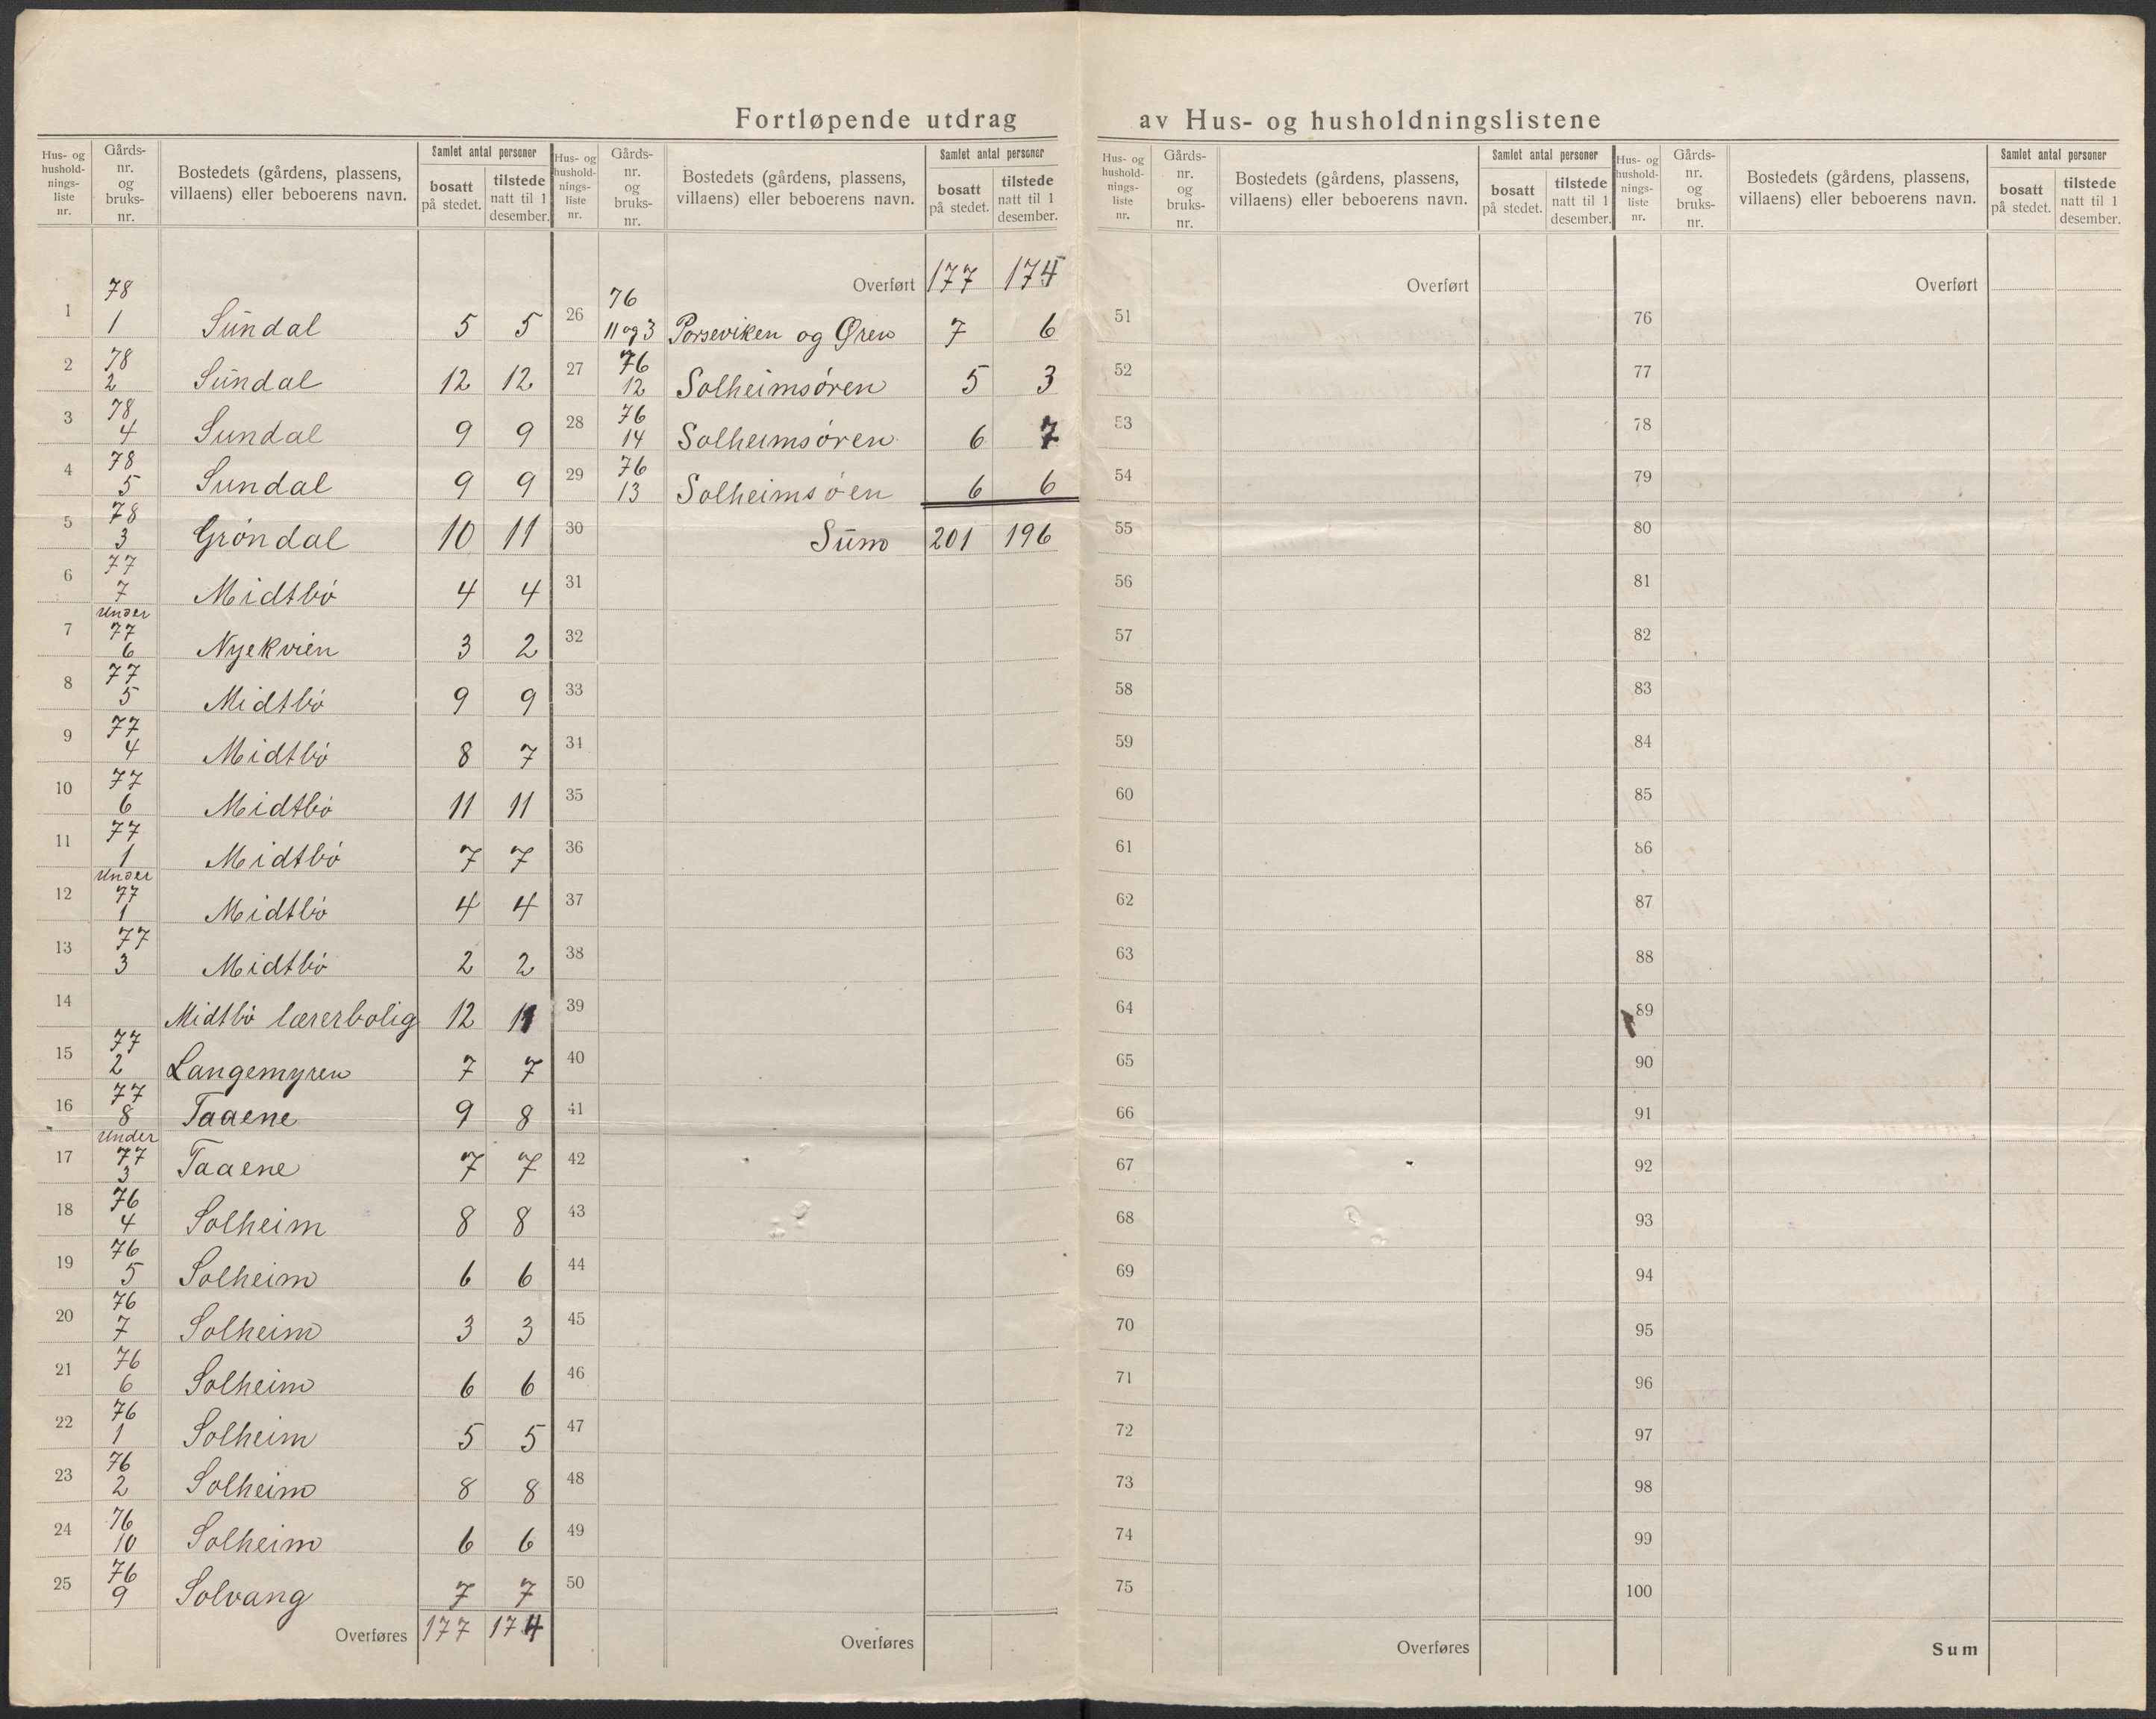 Fortløpende utdrag av Hus- og husholdningslistene
Hus- og hushold-nings-liste nr. | Gårds-nr. og bruks-nr. | Bostedets (gårdens, plassens, villaens) eller beboerens navn. | Samlet antal personer | bosatt på stedet. | tilstede natt til 1 desember.
1 | 78 1 | Sundal | 5 | 5
2 | 78 2 | Sundal | 12 | 12
3 | 78 4 | Sundal | 9 | 9
4 | 78 5 | Sundal | 9 | 9
5 | 78 3 | Gröndal | 10 | 11
6 | 77 7 | Midtbö | 4 | 4
7 | Under 77 6 | Nyekvien | 3 | 2
8 | 77 5 | Midtbö | 9 | 9
9 | 77 4 | Midtbö | 8 | 7
10 | 77 6 | Midtbö | 11 | 11
11 | 77 1 | Midtbö | 7 | 7
12 | Under 77 1 | Midtbö | 4 | 4
13 | 77 3 | Midtbö | 2 | 2
14 | Midtbö lærerbolig | 12 | 11
15 | 77 2 | Langemyren | 7 | 7
16 | 77 8 | Taaene | 9 | 8
17 | Under 77 3 | Taaene | 7 | 7
18 | 76 4 | Solheim | 8 | 8
19 | 76 5 | Solheim | 6 | 6
20 | 76 7 | Solheim | 3 | 3
21 | 76 6 | Solheim | 6 | 6
22 | 76 1 | Solheim | 5 | 5
23 | 76 2 | Solheim | 8 | 8
24 | 76 10 | Solheim | 6 | 6
25 | 76 9 | Solvang | 7 | 7
Overføres | 177 | 174
Hus- og hushold-nings-liste nr. | Gårds-nr. og bruks-nr. | Bostedets (gårdens, plassens, villaens) eller beboerens navn. | Samlet antal personer | bosatt på stedet. | tilstede natt til 1 desember.
Overført | 177 | 174
26 | 76 11 og 3 | Porseviken og Øren | 7 | 6
27 | 76 12 | Solheimsören | 5 | 3
28 | 76 14 | Solheimsören | 6 | 7
29 | 76 13 | Solheimsöen | 6 | 6
30 | Sum | 201 | 196
31
32
33
34
35
36
37
38
39
40
41
42
43
44
45
46
47
48
49
50
Overføres
Hus- og hushold-nings-liste nr. | Gårds-nr. og bruks-nr. | Bostedets (gårdens, plassens, villaens) eller beboerens navn. | Samlet antal personer | bosatt på stedet. | tilstede natt til 1 desember.
Overført
51
52
53
54
55
56
57
58
59
60
61
62
63
64
65
66
67
68
69
70
71
72
73
74
75
Overføres
Hus- og hushold-nings-liste nr. | Gårds-nr. og bruks-nr. | Bostedets (gårdens, plassens, villaens) eller beboerens navn. | Samlet antal personer | bosatt på stedet. | tilstede natt til 1 desember.
Overført
76
77
78
79
80
81
82
83
84
85
86
87
88
89
90
91
92
93
94
95
96
97
98
99
100
Sum